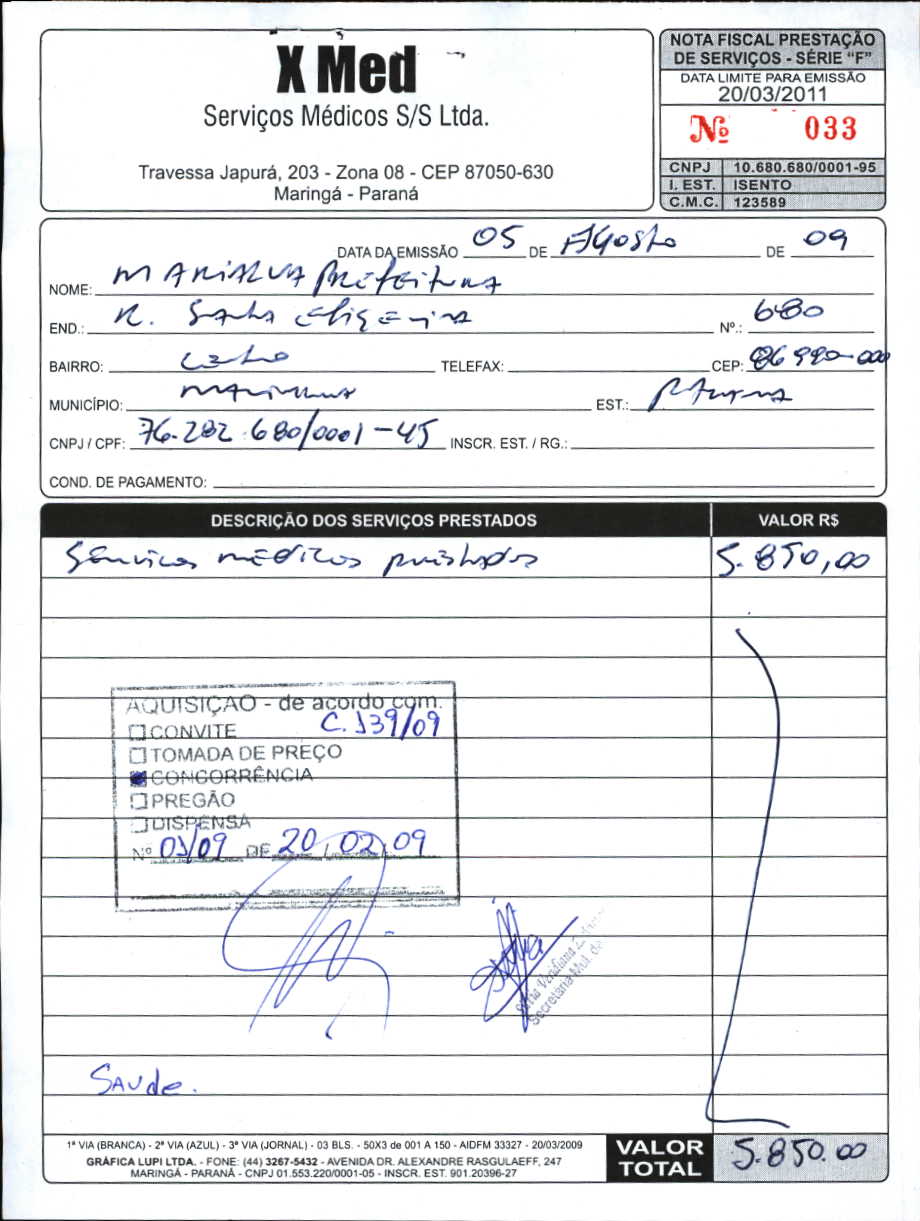 X Med
Serviços Médicos S/S Ltda.
Travessa Japurá, 203 - Zona 08 - CEP 87050-630
Maringá - Paraná
NOTA FISCAL PRESTAÇÃO
DE SERVIÇOS - SÉRIE "F"
DATA LIMITE PARA EMISSÃO
20/03/2011
Nº 033
CNPJ 10.680.680/0001-95
I. EST. ISENTO
C.M.C. 123589
DATA DA EMISSÃO 05 DE Agosto DE 09
NOME: MARIALVA PREfEiTURA
END.: R. Santa Efigenia Nº.: 680
BAIRRO: Centro TELEFAX: CEP: 86990-000
MUNICÍPIO: Marialva EST.: Paraná
CNPJ / CPF: 76.282.680/0001-45 INSCR. EST. / RG.:
COND. DE PAGAMENTO:
DESCRIÇÃO DOS SERVIÇOS PRESTADOS VALOR R$
Serviços médicos prestados 5.850,00
AQUISIÇÃO - de acordo com:
CONVITE C. 139/09
TOMADA DE PREÇO
CONCORRÊNCIA
PREGÃO
DISPENSA
Nº 01/09 DE 20 / 02 / 09
Secretaria Mul. de
Saude.
1ª VIA (BRANCA) - 2ª VIA (AZUL) - 3ª VIA (JORNAL) - 03 BLS. - 50X3 de 001 A 150 - AIDFM 33327 - 20/03/2009
GRÁFICA LUPI LTDA. - FONE: (44) 3267-5432 - AVENIDA DR. ALEXANDRE RASGULAEFF, 247
MARINGÁ - PARANÁ - CNPJ 01.553.220/0001-05 - INSCR. EST. 901.20396-27
VALOR TOTAL 5.850.00